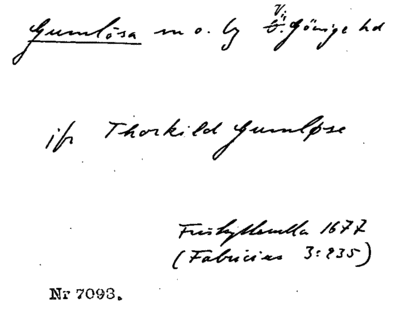 Gumlösa sn o. by V. Göinge hd
jfr Thorkild Gumløse
Friskyttarulla 1677
(Fabricius 3:235)
Nr 7093.